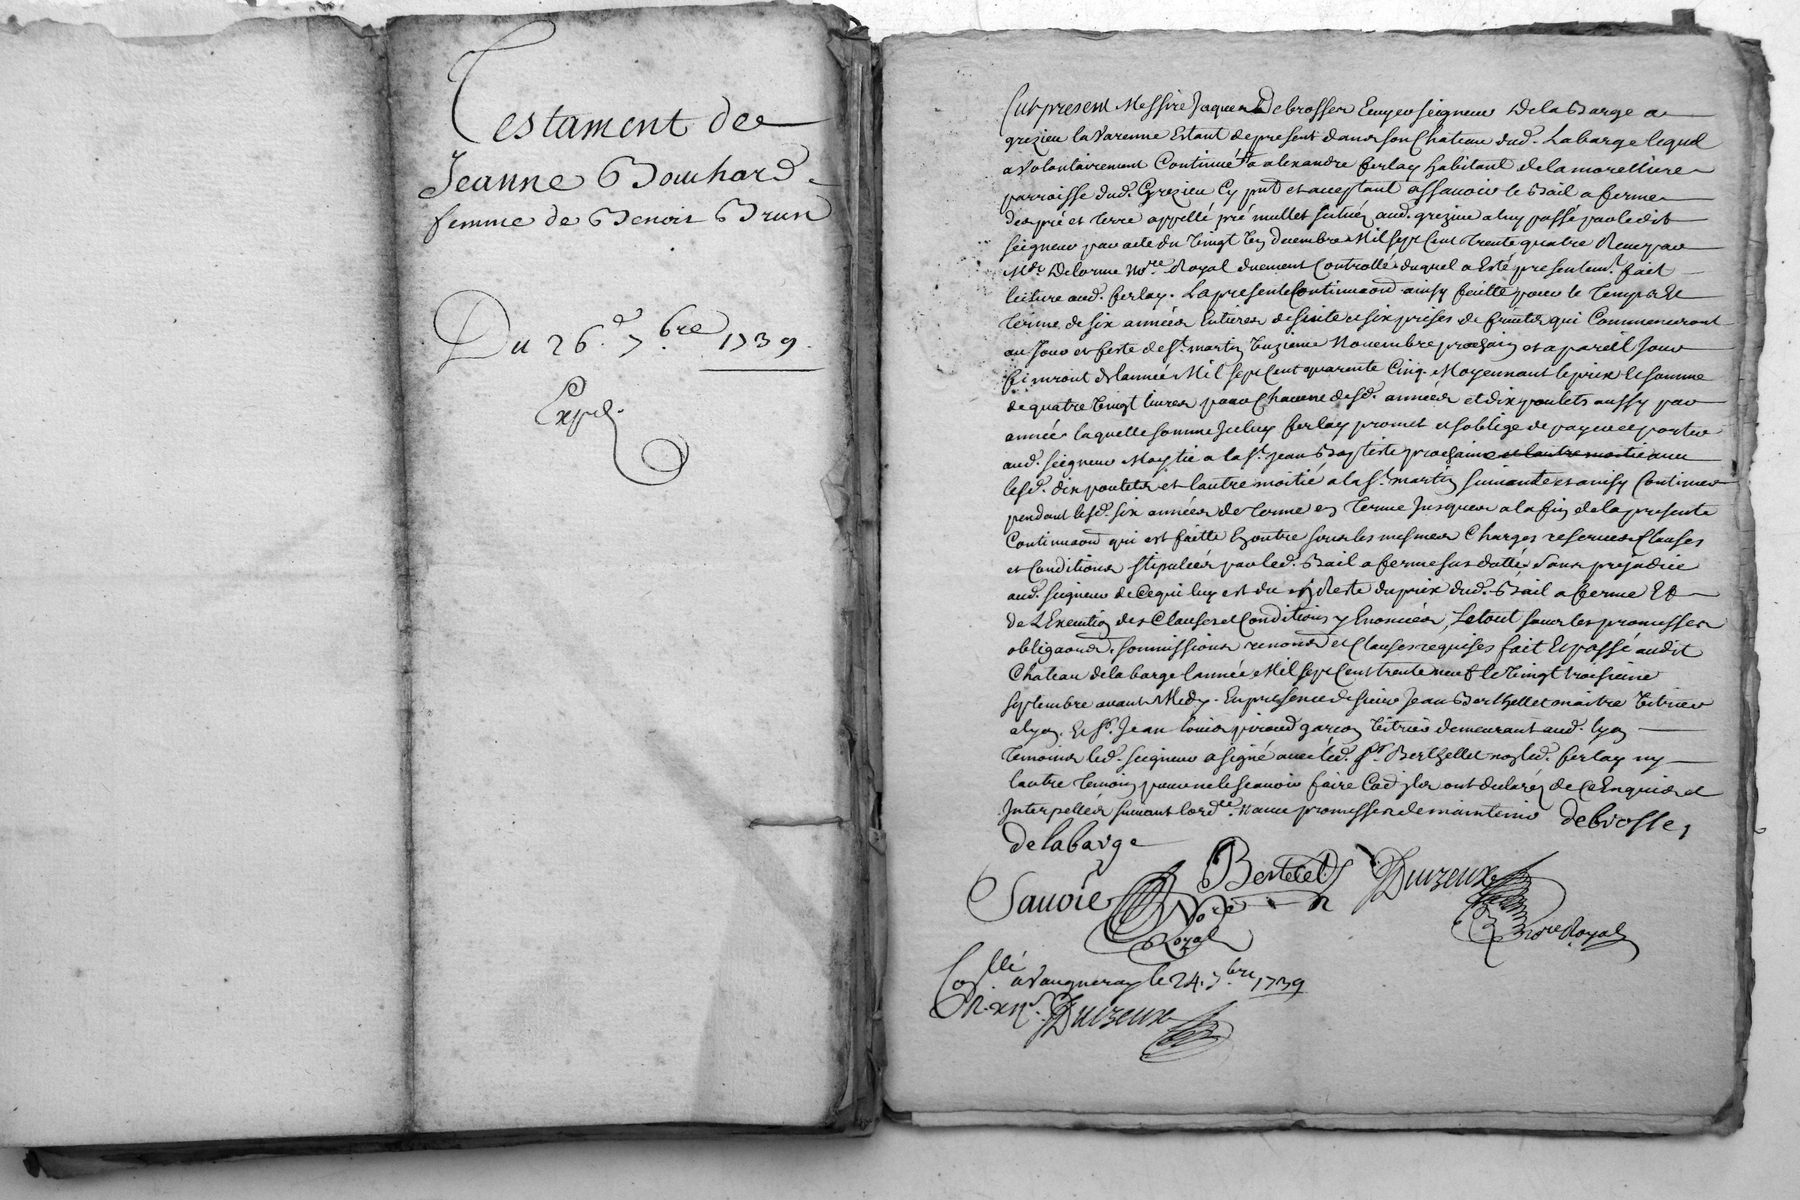 Testament de
Jeanne Bouchard
femme de Benoit Brun
Du 26.e 7.bre 1739.
Expd.
fut present Messire Jaques Debrosses Ecuyer seigneur De la Barge a
grezieu la Varenne Estant de present dans son Chateau dud. Labarge lequel
a volontairement Continué a alexandre ferlay habitant de la morelliere
parroisse dud. Grezieu Cy pnt et acceptant assavoir le Bail a ferme
des pré et terre appellé pré mullet situés aud. grezieu a luy passé par ledit
seigneur par acte du vingt Decembre Mil sept Cent trente quatre Receu par
Me. Delorme No.re Royal duement Controllé duquel a Esté presentem.t fait
lecture aud. ferlay. La presente Continuaon ainsy faitte pour le Temps Et
Terme de six années Entieres de suite et six prises de fruits qui Commenceront
au Jour et feste de St. martin unzieme Novembre prochain et a pareil Jour
finiront de lannée Mil sept Cent quarente Cinq. Moyennant le prix Et somme
de quatre vingt livres pour Chacune desd. années et dix poulets aussy par
année laquelle somme Iceluy ferlay promet et soblige de payer et porter
aud. seigneur Moytié a la St. Jean Baptiste prochaine et lautre moitié avec
lesd. dix poulets et lautre moitié a la St. martin suivante et ainsy Continuer
pendant lesd. six années de terme en terme Jusques a la fin de la presente
Continuaon qui est faitte Enoutre sous les mesmes Charges reserves Clauses
et Conditions stipulées par led. Bail a ferme sus datté sans prejudice
aud. seigneur de Ce qui luy est du Reste du prix dud. Bail a ferme Et
de L'Execution des Clauses et Conditions y Enoncées, Le tout sous les promesses
obligaons. soumissions renons et Clauses requises fait Et passé audit
Chateau de la barge lannée Mil sept Cent trente neuf le vingt troisieme
septembre avant Midy. En presence de sieur Jean Berthellet maitre Vitrier
a lyon. Et Sr. Jean Louis giraud garçon Vitrier demeurant aud. lyon
Temoins led. seigneur a signé avec led. Sr. Berthellet non led. ferlay ny
lautre temoin pour ne le scavoir faire Comme ils ont declarés de Ce Enquis et
Interpellés suivant lord.ce. Debrosses
de labarge
Bertelet Duizeux
Savoie No.re
Royal No.re Royal
Co.llé a Vaugneray le 24. 7.bre 1739
Duizeux